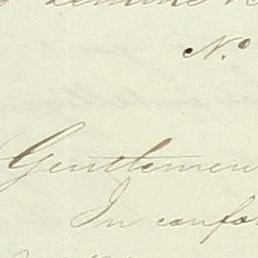 No.
Gentlemen
In confo